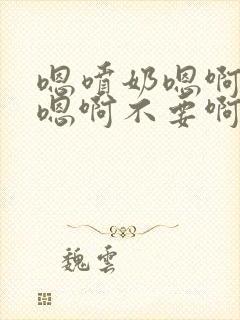 嗯喷奶嗯啊
嗯啊不要啊
魏雲